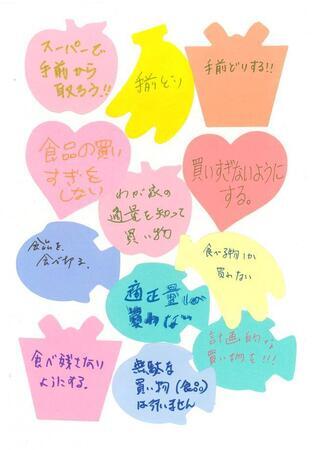 スーパーで
手前から
取ろう!!
手前どり
手前どりする!!
食品の買い
すぎをし
ない
わが家の
適量を知って
買い物
買いすぎないように
する。
食品を、
食べきる。
適正量しか
買わない
食べる物しか
買わない
食べ残さない
ようにする。
無駄な
買い物(食品)
は行いません
計画的な
買い物を!!!